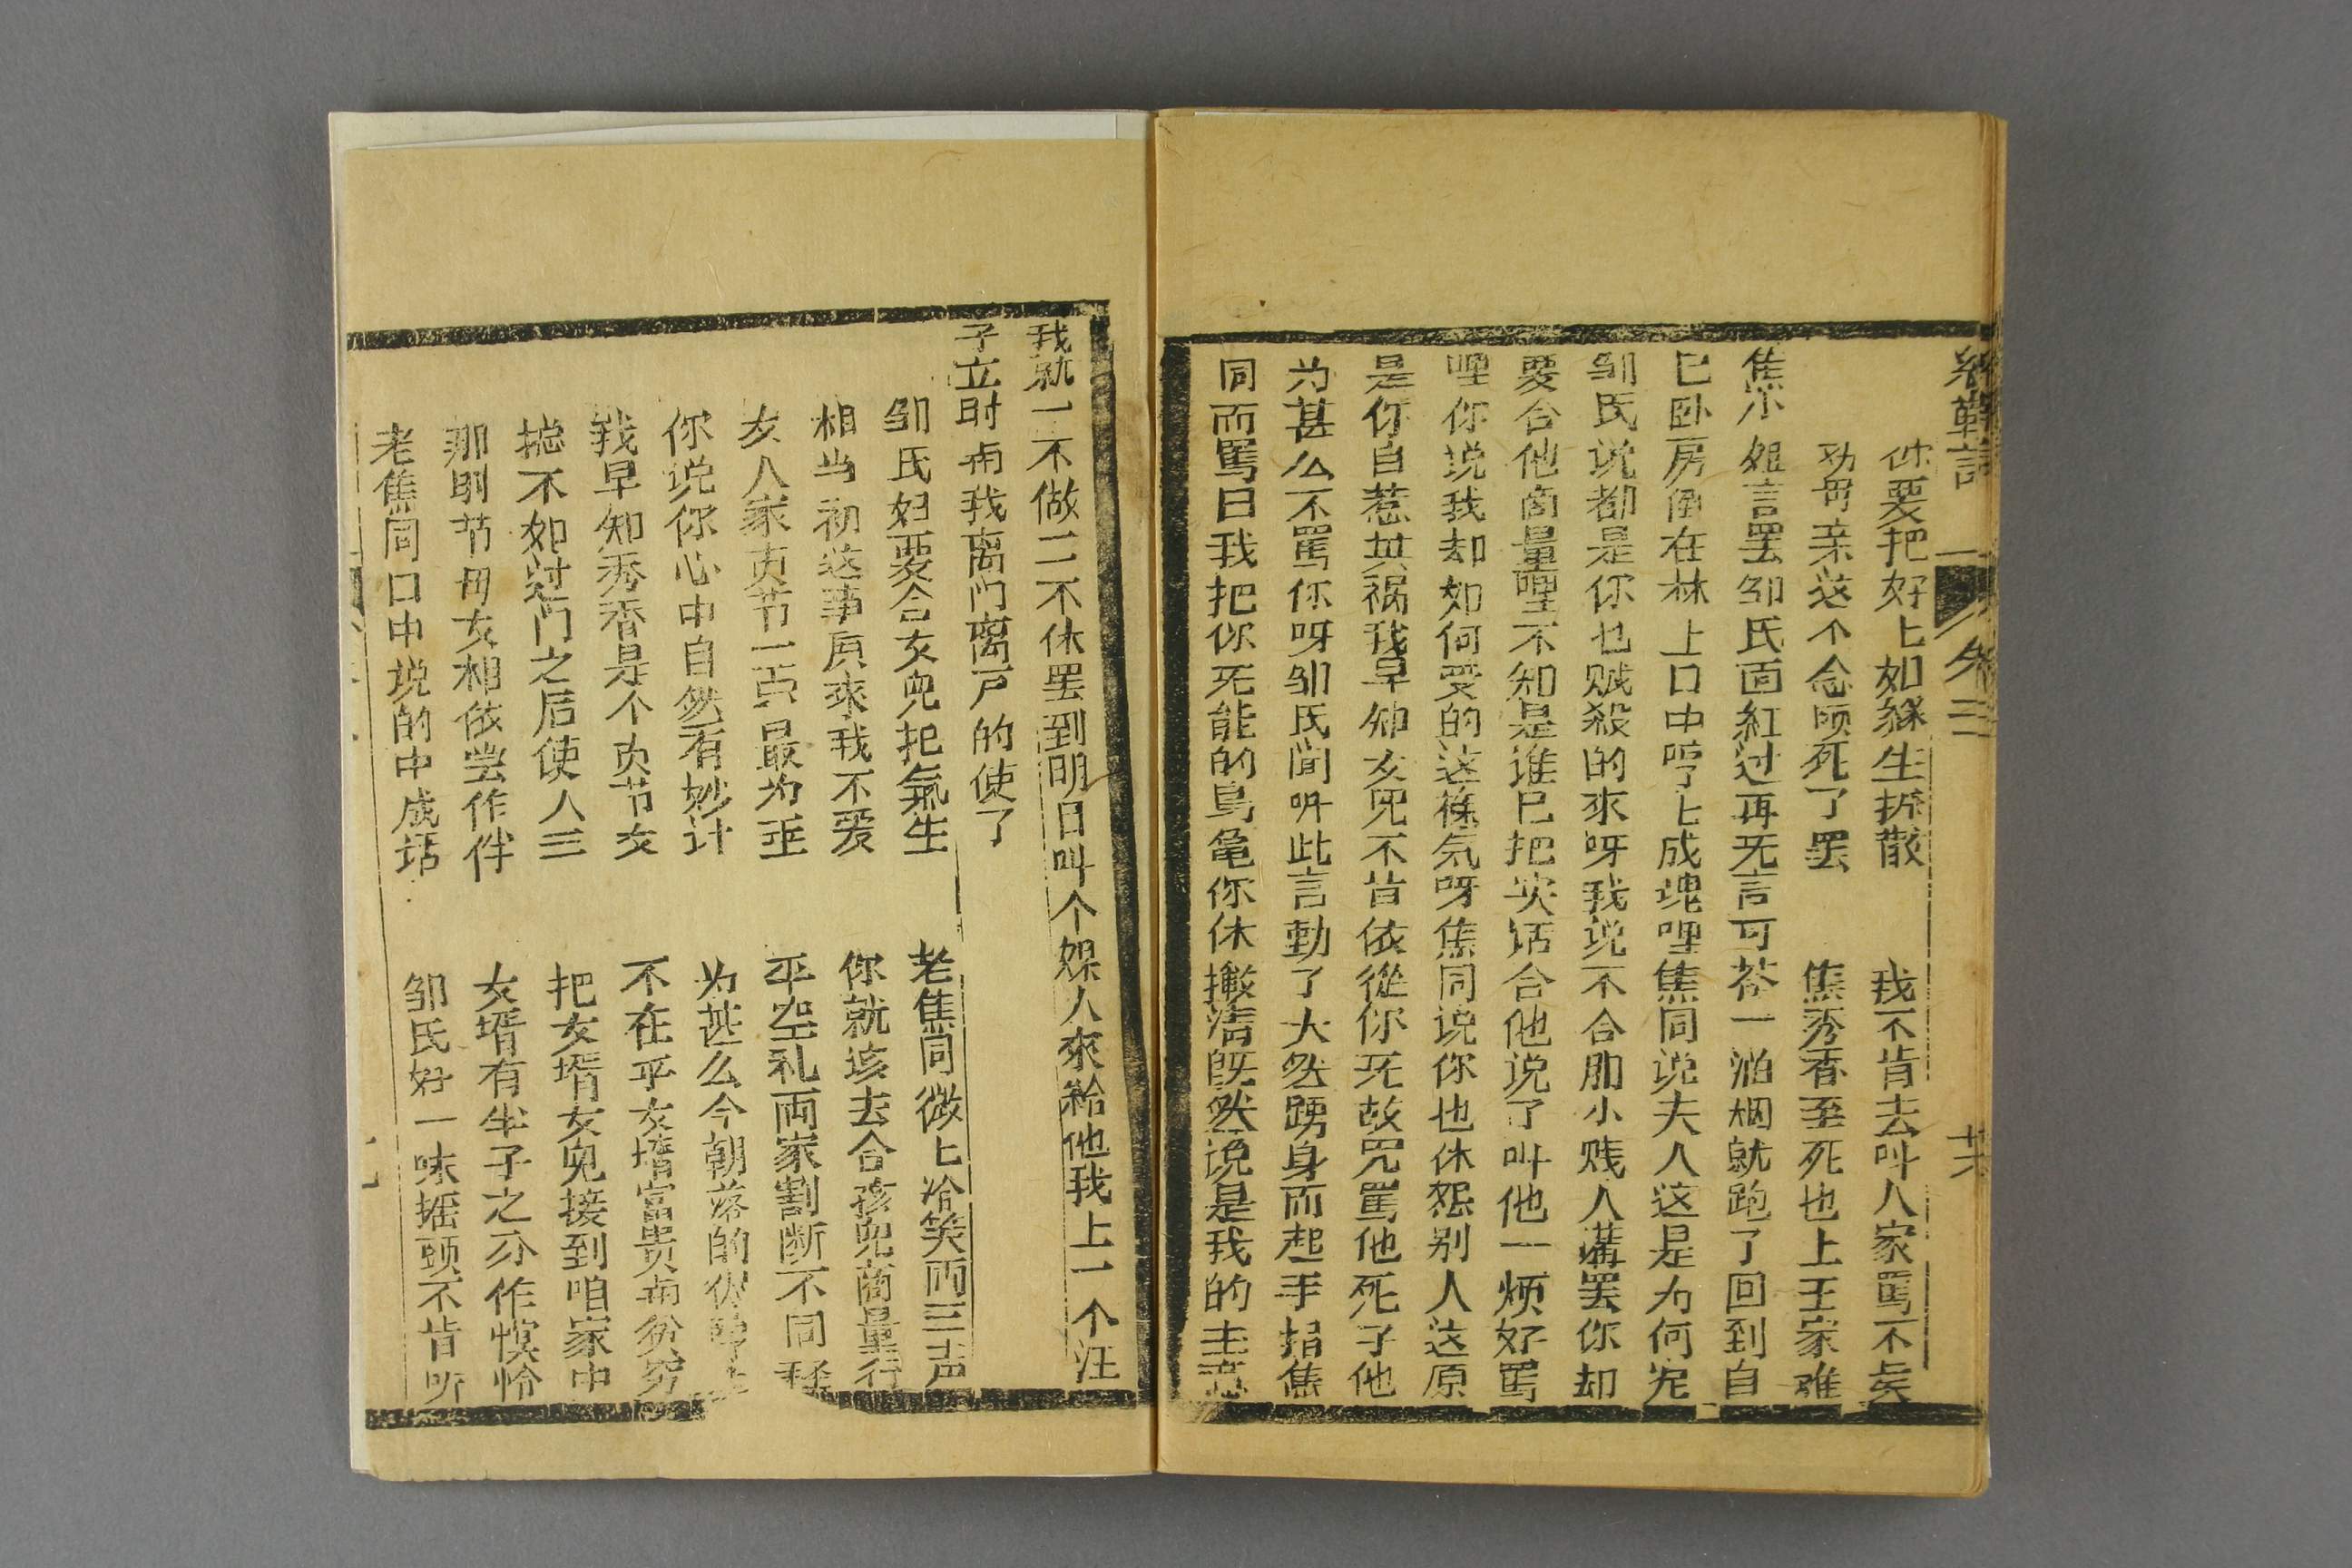 卷三
你要把好上如緣生拆散 我不肯去叫人家罵不長
劝毋亲这个念頭死了罢 焦秀香至死也上王家难
焦小姐言罢邹氏面紅过再无言可荅一泊烟就跑了回到自
已卧房衙在林上口中哼上成塊哩焦同说夫人这是为何
邹氏说都是你也贼殺的來呀我说不合那小贱人講罢你却
要合他商量哩不知是谁已把实话合他说了叫他一顿好罵
哩你说我却如何受的这様氛呀焦同说你也休怨别人这原
是你自惹其祸我早知女児不肯依從你无故咒罵他死子他
为甚么不罵你呀邹氏闻听此言動了大然踴身而起手指焦
同而罵曰我把你死能的烏龟你休撇清既然说是我的主意
我就一不做二不休罢到明日叫个媒人來給他我上一个汪
子立时甪我离门离户的使了
邹氏妇要合女児把氣生 老焦同微上冷笑両三声
相当初这事原來我不爱 你就该去合孩児商量行
女人家贞节一亊最为重 平空礼両家割断不同
你说你心中自然有妙计 为甚么今朝落的
我早知秀香是个贞节女 不在乎女壻富贵甪贫穷
搃不如过门之后使人三 把女壻女児接到咱家中
那时节毋女相依尝作伴 女壻有半子之分作慔怜
老焦同口中说的中成话 邹氏妇一味摇頭不肯听